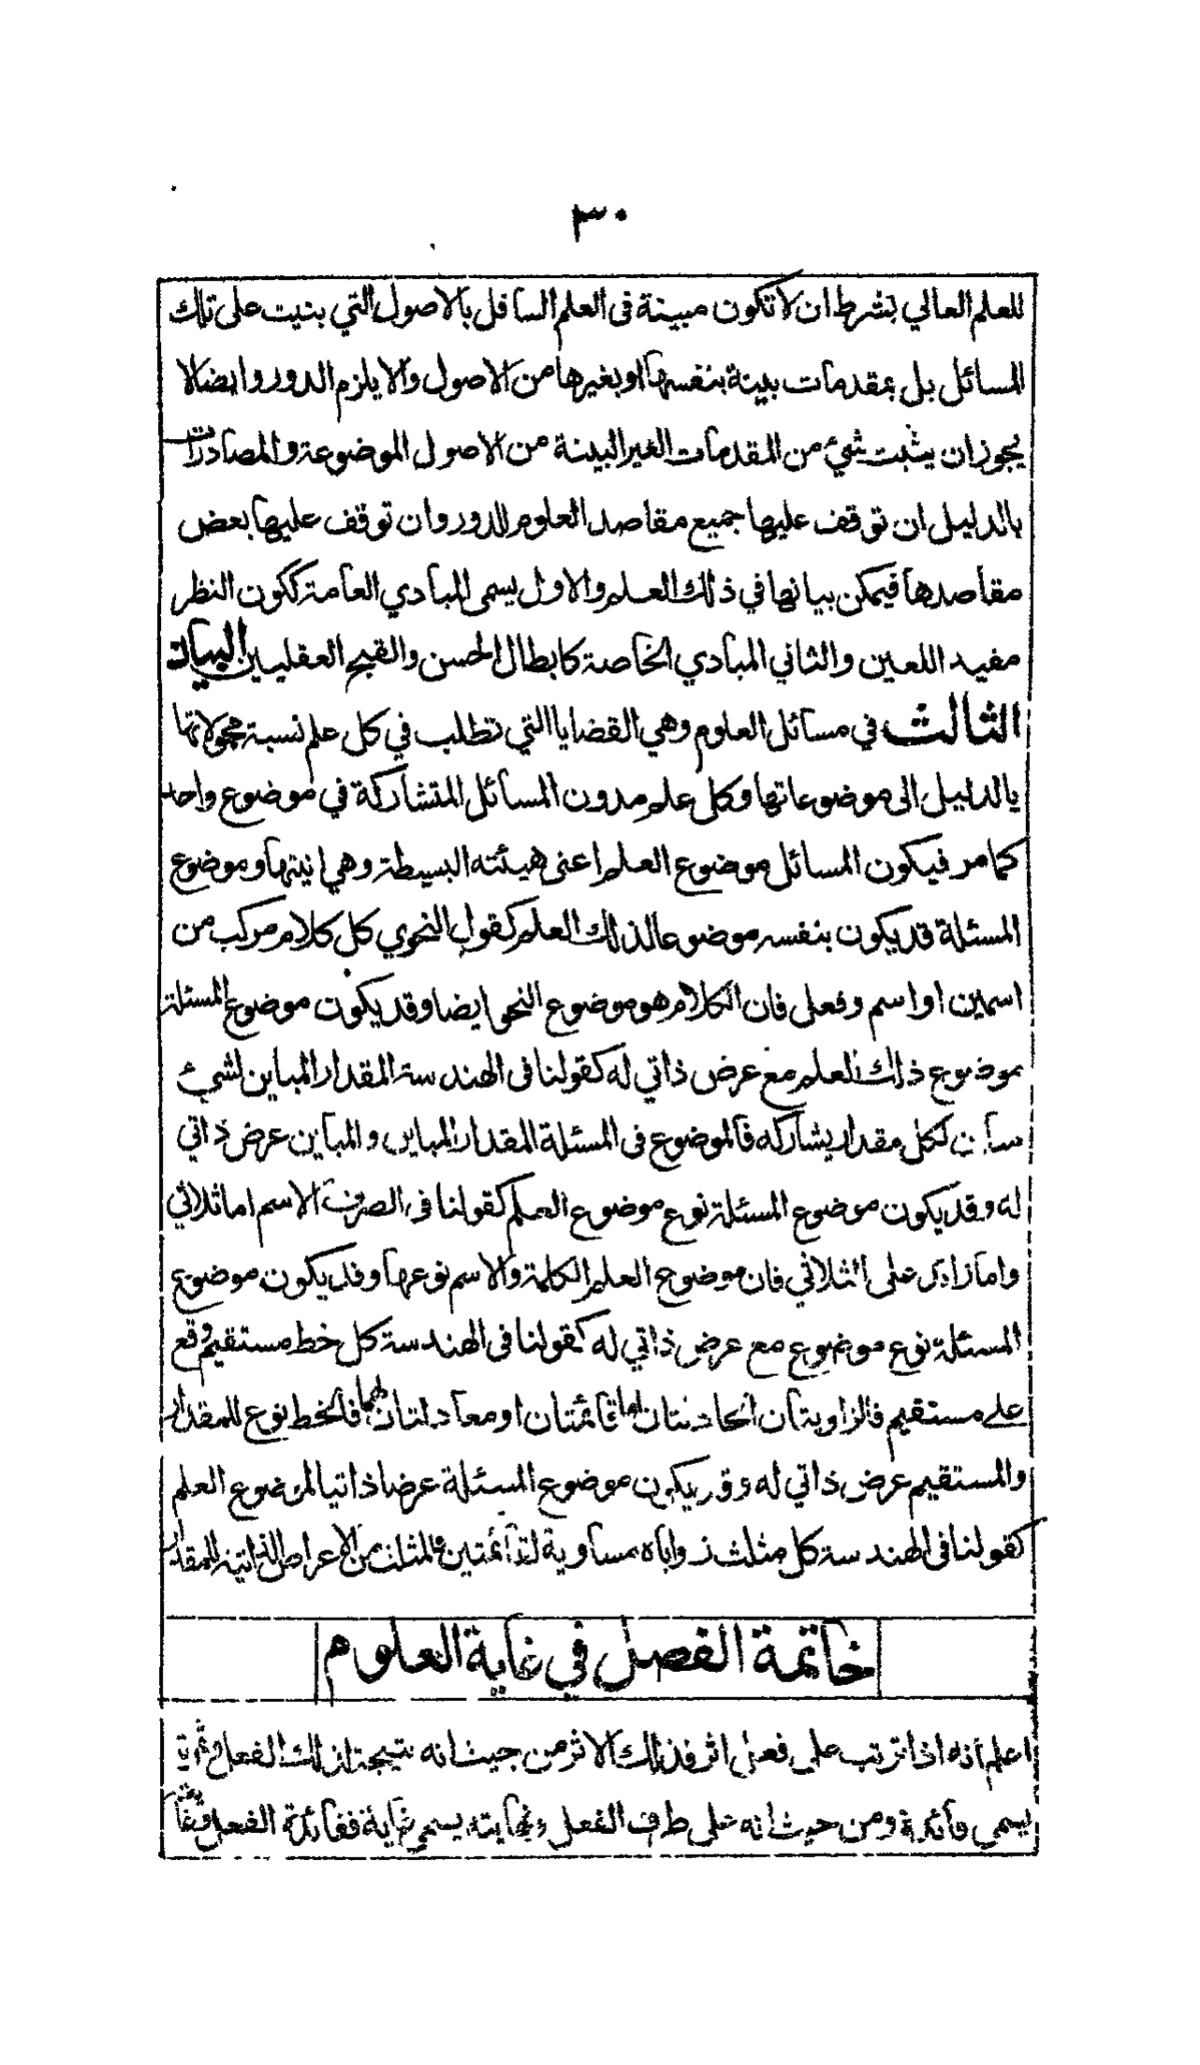 ٣٠
للعلم العالي بشرط ان لا تكون مبينة فى العلم السافل بالاصول التي بنيت على تلك
المسائل بل بمقدمات بينة بنفسها او بغيرها من الاصول والا يلزم الدور وايضا لا
يجوز ان يثبت شئ من المقدمات الغير البينة من الاصول الموضوعة والمصادرات
بالدليل ان توقف عليها جميع مقاصد العلوم للدور وان توقف عليها بعض
مقاصدها فيمكن بيانها في ذلك العلم والاول يسمى المبادي العامة ككون النظر
مفيد اللعين والثاني المبادي الخاصة كابطال الحسن والقبح العقليين البيان
الثالث في مسائل العلوم وهي القضايا التي تطلب في كل علم نسبة محمولاتها
بالدليل الى موضوعاتها وكل علم مدون المسائل المتشاركة في موضوع واحد
كما مر فيكون المسائل موضوع العلم اعنى هيئته البسيطة وهي انيتها وموضوع
المسئلة قد يكون بنفسه موضوعا لذلك العلم كقول النحوي كل كلام مركب من
اسمين او اسم وفعل فان الكلام هو موضوع النحو ايضا وقد يكون موضوع المسئلة
موضوع ذلك العلم مع عرض ذاتي له كقولنا فى الهندسة المقدار المباين لشئ
مباين لكل مقدار يشاركه فالموضوع فى المسئلة المقدار المباين والمباين عرض ذاتي
له وقد يكون موضوع المسئلة نوع موضوع العلم كقولنا فى الصرف الاسم اما ثلاثي
واما زايد على الثلاثي فان موضوع العلم الكلمة والاسم نوعها وقد يكون موضوع
المسئلة نوع موضوع مع عرض ذاتي له كقولنا فى الهندسة كل خط مستقيم وقع
على مستقيم فالزاويتان الحادثتان اما قائمتان او معادلتان لهما فالخط نوع للمقدار
والمستقيم عرض ذاتي له وقد يكون موضوع المسئلة عرضا ذاتيا لموضوع العلم
كقولنا فى الهندسة كل مثلث زواياه مساوية لقائمتين فالمثلث من الاعراض الذاتية للمقدار
خاتمة الفصل في غاية العلوم
اعلم انه اذا ترتب على فعل اثر فذلك الاثر من حيث انه نتيجة لذلك الفعل وثمرته
يسمى فائدة ومن حيث انه على طرف الفعل ونهايته يسمى غاية ففائدة الفعل وغايته